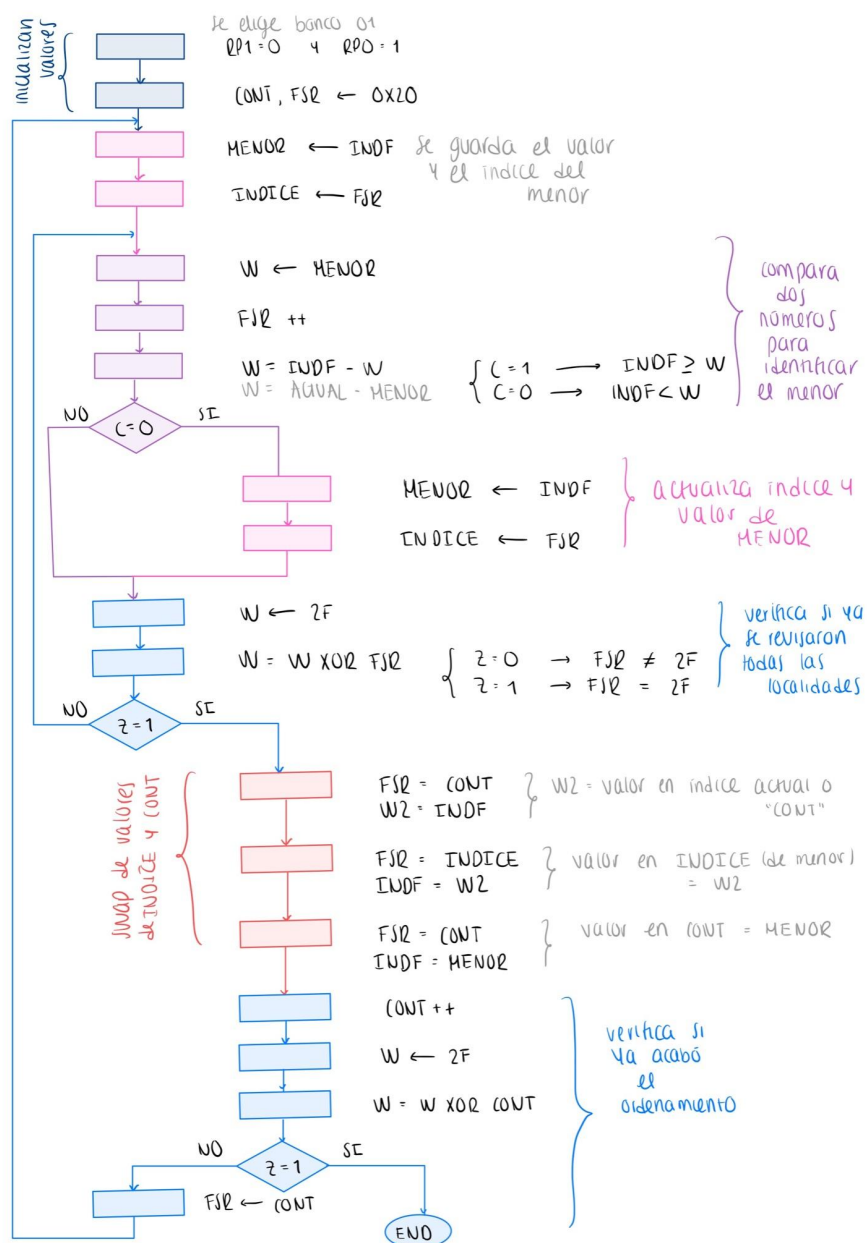 se elige banco 01
RP1=0 y RP0=1
inicializan
valores
CONT, FSR ← 0X20
MENOR ← INDF
se guarda el valor
y el índice del
menor
INDICE ← FSR
W ← MENOR
FSR ++
W = INDF - W
W = ACTUAL - MENOR
C=1 → INDF ≥ W
C=0 → INDF < W
compara
dos
números
para
identificar
el menor
NO
C=0
SI
MENOR ← INDF
INDICE ← FSR
actualiza indice y
valor de
MENOR
W ← 2F
W = W XOR FSR
Z=0 → FSR ≠ 2F
Z=1 → FSR = 2F
verifica si ya
se revisaron
todas las
localidades
NO
Z=1
SI
swap de valores
de INDICE y CONT
FSR = CONT
W2 = INDF
W2 = valor en indice actual o
"CONT"
FSR = INDICE
INDF = W2
valor en INDICE (de menor)
= W2
FSR = CONT
INDF = MENOR
valor en CONT = MENOR
CONT ++
W ← 2F
W = W XOR CONT
verifica si
ya acabó
el
ordenamiento
NO
Z=1
SI
FSR ← CONT
END